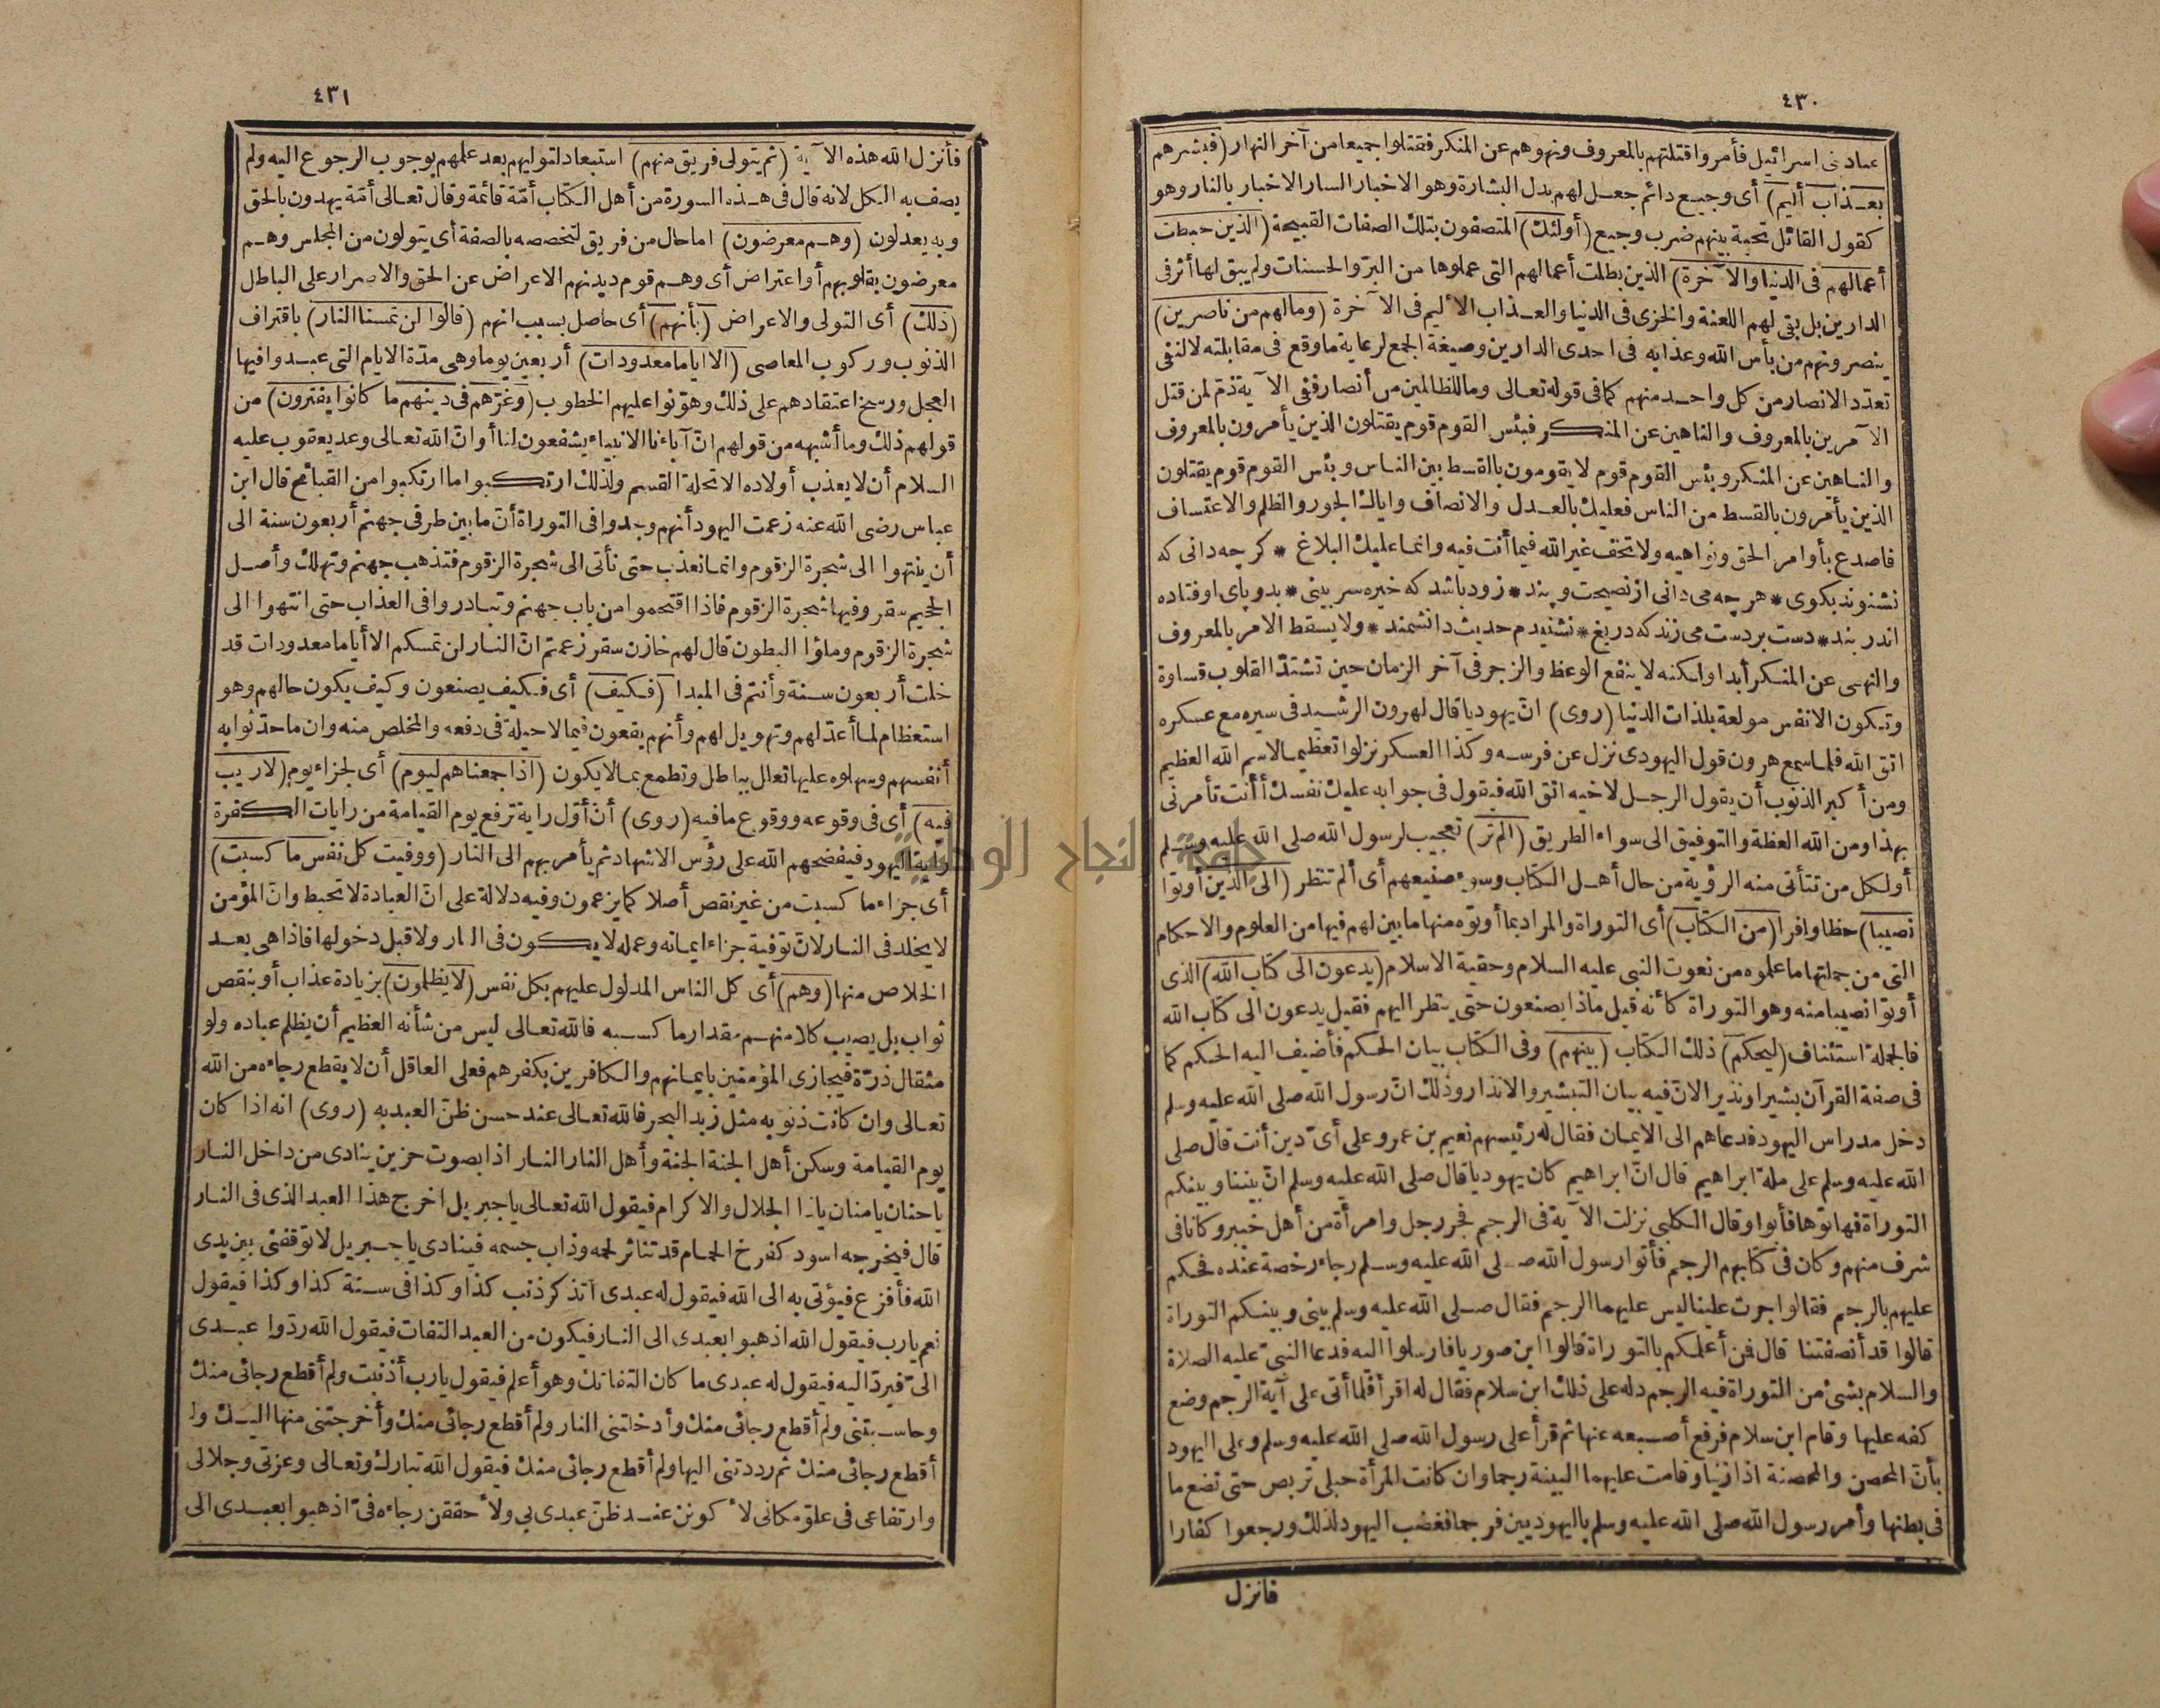 ٤٣٠
عباد بنى اسرائيل فأمروا قتلتهم بالمعروف ونهوهم عن المنكر فقتلوا جميعا من آخر النهار (فبشرهم
بعذاب أليم) أى وجيع دائم جعل لهم بدل البشارة وهو الاخبار السار الاخبار بالنار وهو
كقول القائل تحية بينهم ضرب وجيع (أولئك) المتصفون بتلك الصفات القبيحة (الذين حبطت
أعمالهم فى الدنيا والآخرة) الذين بطلت أعمالهم التى عملوها من البرّ والحسنات ولم يبق لها أثر فى
الدارين بل بقى لهم اللعنة والخزى فى الدنيا والعذاب الأليم فى الآخرة (ومالهم من ناصرين)
ينصرونهم من بأس الله وعذابه فى احدى الدارين وصيغة الجمع لرعاية ما وقع فى مقابلته لالنفى
تعدّد الانصار من كل واحد منهم كما فى قوله تعالى وما للظالمين من أنصار ففى الآية ذمّ لمن قتل
الآمرين بالمعروف والناهين عن المنكر فبئس القوم قوم يقتلون الذين يأمرون بالمعروف
والناهين عن المنكر وبئس القوم قوم لا يقومون بالقسط بين الناس وبئس القوم قوم يقتلون
الذين يأمرون بالقسط من الناس فعليك بالعدل والانصاف واياك الجور والظلم والاعتساف
فاصدع بأوامر الحق ونواهيه ولا تخف غير الله فيما أنت فيه وانما عليك البلاغ * كرچه دانى كه
نشنوند بكوى * هرچه مى دانى از نصيحت وپند * زود باشد كه خيره سر بينى * بدوپاى اوفتاده
اندر بند * دست بردست مى زند كه دريغ * نشنيدم حديث دانشمند * ولا يسقط الامر بالمعروف
والنهى عن المنكر أبدا ولكنه لا ينفع الوعظ والزجر فى آخر الزمان حين تشتدّ القلوب قساوة
وتكون الانفس مولعة بلذات الدنيا (روى) انّ يهوديا قال لهرون الرشيد فى سيره مع عسكره
اتق الله فلما سمع هرون قول اليهودى نزل عن فرسه وكذا العسكر نزلوا تعظيما لاسم الله العظيم
ومن أكبر الذنوب أن يقول الرجل لاخيه اتق الله فيقول فى جوابه عليك نفسك أأنت تأمرنى
بهذا ومن الله العظة والتوفيق الى سواء الطريق (ألم تر) تعجيب لرسول الله صلى الله عليه وسلم
أولكل من تتأتى منه الرؤية من حال أهل الكتاب وسوء صنيعهم أى ألم تنظر (الى الذين أوتوا
نصيبا) حظا وافرا (من الكتاب) أى التوراة والمراد بما أوتوه منها ما بين لهم فيها من العلوم والاحكام
التى من جملتها ما علموه من نعوت النبى عليه السلام وحقية الاسلام (يدعون الى كتاب الله) الذى
أوتوا نصيبا منه وهو التوراة كأنه قيل ماذا يصنعون حتى ينظر اليهم فقيل يدعون الى كتاب الله
فالجملة استئناف (ليحكم) ذلك الكتاب (بينهم) وفى الكتاب بيان الحكم فأضيف اليه الحكم كما
فى صفة القرآن بشيرا ونذيرا لانّ فيه بيان التبشير والانذار وذلك انّ رسول الله صلى الله عليه وسلم
دخل مدراس اليهود فدعاهم الى الايمان فقال له رئيسهم نعيم بن عمرو على أىّ دين أنت قال صلى
الله عليه وسلم على ملة ابراهيم قال انّ ابراهيم كان يهوديا قال صلى الله عليه وسلم انّ بيننا وبينكم
التوراة فهاتوها فأبوا وقال الكلبى نزلت الآية فى الرجم فجر رجل وامرأة من أهل خيبر وكانا فى
شرف منهم وكان فى كتابهم الرجم فأتوا رسول الله صلى الله عليه وسلم رجاء رخصة عنده فحكم
عليهم بالرجم فقالوا جرت علينا ليس عليهما الرجم فقال صلى الله عليه وسلم بينى وبينكم التوراة
قالوا قد أنصفتنا قال فمن أعلمكم بالتوراة قالوا ابن صوريا فارسلوا اليه فدعا النبىّ عليه الصلاة
والسلام بشئ من التوراة فيه الرجم دله على ذلك ابن سلام فقال له اقرأ فلما أتى على آية الرجم وضع
كفه عليها وقام ابن سلام فرفع أصبعه عنها ثم قرأ على رسول الله صلى الله عليه وسلم وعلى اليهود
بأنّ المحصن والمحصنة اذا زنيا وقامت عليهما البينة رجما وان كانت المرأة حبلى تربص حتى تضع ما
فى بطنها وأمر رسول الله صلى الله عليه وسلم باليهوديين فرجما فغضب اليهود لذلك ورجعوا كفارا
فانزل
٤٣١
فأنزل الله هذه الآية (ثم يتولى فريق منهم) استبعاد لتوليهم بعد علمهم بوجوب الرجوع اليه ولم
يصف به الكل لانه قال فى هذه السورة من أهل الكتاب أمّة قائمة وقال تعالى أمّة يهدون بالحق
وبه يعدلون (وهم معرضون) اما حال من فريق لتخصصه بالصفة أى يتولون من المجلس وهم
معرضون بقلوبهم أو اعتراض أى وهم قوم ديدنهم الاعراض عن الحق والاصرار على الباطل
(ذلك) أى التولى والاعراض (بأنهم) أى حاصل بسبب انهم (قالوا لن تمسنا النار) باقتراف
الذنوب وركوب المعاصى (الا اياما معدودات) أربعين يوما وهى مدّة الايام التى عبدوا فيها
العجل ورسخ اعتقادهم على ذلك وهوّنوا عليهم الخطوب (وغرّهم فى دينهم ما كانوا يفترون) من
قولهم ذلك وما أشبهه من قولهم انّ آباءنا الانبياء يشفعون لنا أو انّ الله تعالى وعد يعقوب عليه
السلام أن لا يعذب أولاده الا تحلة القسم ولذلك ارتكبوا ما ارتكبوا من القبائح قال ابن
عباس رضى الله عنه زعمت اليهود أنهم وجدوا فى التوراة أنّ ما بين طرفى جهنم أربعون سنة الى
أن ينتهوا الى شجرة الزقوم وانما نعذب حتى نأتى الى شجرة الزقوم فتذهب جهنم وتهلك وأصل
الجحيم سقر وفيها شجرة الزقوم فاذا اقتحموا من باب جهنم وتبادروا فى العذاب حتى انتهوا الى
شجرة الزقوم وملؤا البطون قال لهم خازن سقر زعمتم انّ النار لن تمسكم الا أياما معدودات قد
خلت أربعون سنة وأنتم فى المبدا (فكيف) أى فكيف يصنعون وكيف يكون حالهم وهو
استعظام لما أعدّ لهم وتهويل لهم وأنهم يقعون فيما لا حيلة فى دفعه والمخلص منه وان ما حدّثوا به
أنفسهم وسهلوه عليها تعلل بباطل وتطمع بما لا يكون (اذا جمعناهم ليوم) أى لجزاء يوم (لا ريب
فيه) أى فى وقوعه ووقوع ما فيه (روى) أنّ أوّل راية ترفع يوم القيامة من رايات الكفرة
راية اليهود فيفضحهم الله على رؤس الاشهاد ثم يأمر بهم الى النار (ووفيت كل نفس ما كسبت)
أى جزاء ما كسبت من غير نقص أصلا كما يزعمون وفيه دلالة على انّ العبادة لا تحبط وانّ المؤمن
لا يخلد فى النار لانّ توفية جزاء ايمانه وعمله لا يكون فى النار ولا قبل دخولها فاذا هى بعد
الخلاص منها (وهم) أى كل الناس المدلول عليهم بكل نفس (لا يظلمون) بزيادة عذاب أو بنقص
ثواب بل يصيب كلا منهم مقدار ما كسبه فالله تعالى ليس من شأنه العظيم أن يظلم عباده ولو
مثقال ذرّة فيجازى المؤمنين بايمانهم والكافرين بكفرهم فعلى العاقل أن لا يقطع رجاءه من الله
تعالى وان كانت ذنوبه مثل زبد البحر فالله تعالى عند حسن ظنّ العبد به (روى) انه اذا كان
يوم القيامة وسكن أهل الجنة الجنة وأهل النار النار اذا بصوت حزين ينادى من داخل النار
يا حنان يا منان يا ذا الجلال والاكرام فيقول الله تعالى يا جبريل اخرج هذا العبد الذى فى النار
قال فيخرجه اسود كفرخ الحمام قد تناثر لحمه وذاب جسمه فينادى يا جبريل لا توقفنى بين يدى
الله فأفزع فيؤتى به الى الله فيقول له عبدى أتذكر ذنب كذا وكذا فى سنة كذا وكذا فيقول
نعم يا رب فيقول الله اذهبوا بعبدى الى النار فيكون من العبد التفات فيقول الله ردّوا عبدى
الىّ فيردّ اليه فيقول له عبدى ما كان التفاتك وهو أعلم فيقول يا رب أذنبت ولم أقطع رجائى منك
وحاسبتنى ولم أقطع رجائى منك وأدخلتنى النار ولم أقطع رجائى منك وأخرجتنى منها اليك ولم
أقطع رجائى منك ثم رددتنى اليها ولم أقطع رجائى منك فيقول الله تبارك وتعالى وعزتى وجلالى
وارتفاعى فى علوّ مكانى لأكونن عند ظنّ عبدى بى ولأحققن رجاءه فىّ اذهبوا بعبدى الى
جامعة النجاح الوطنية